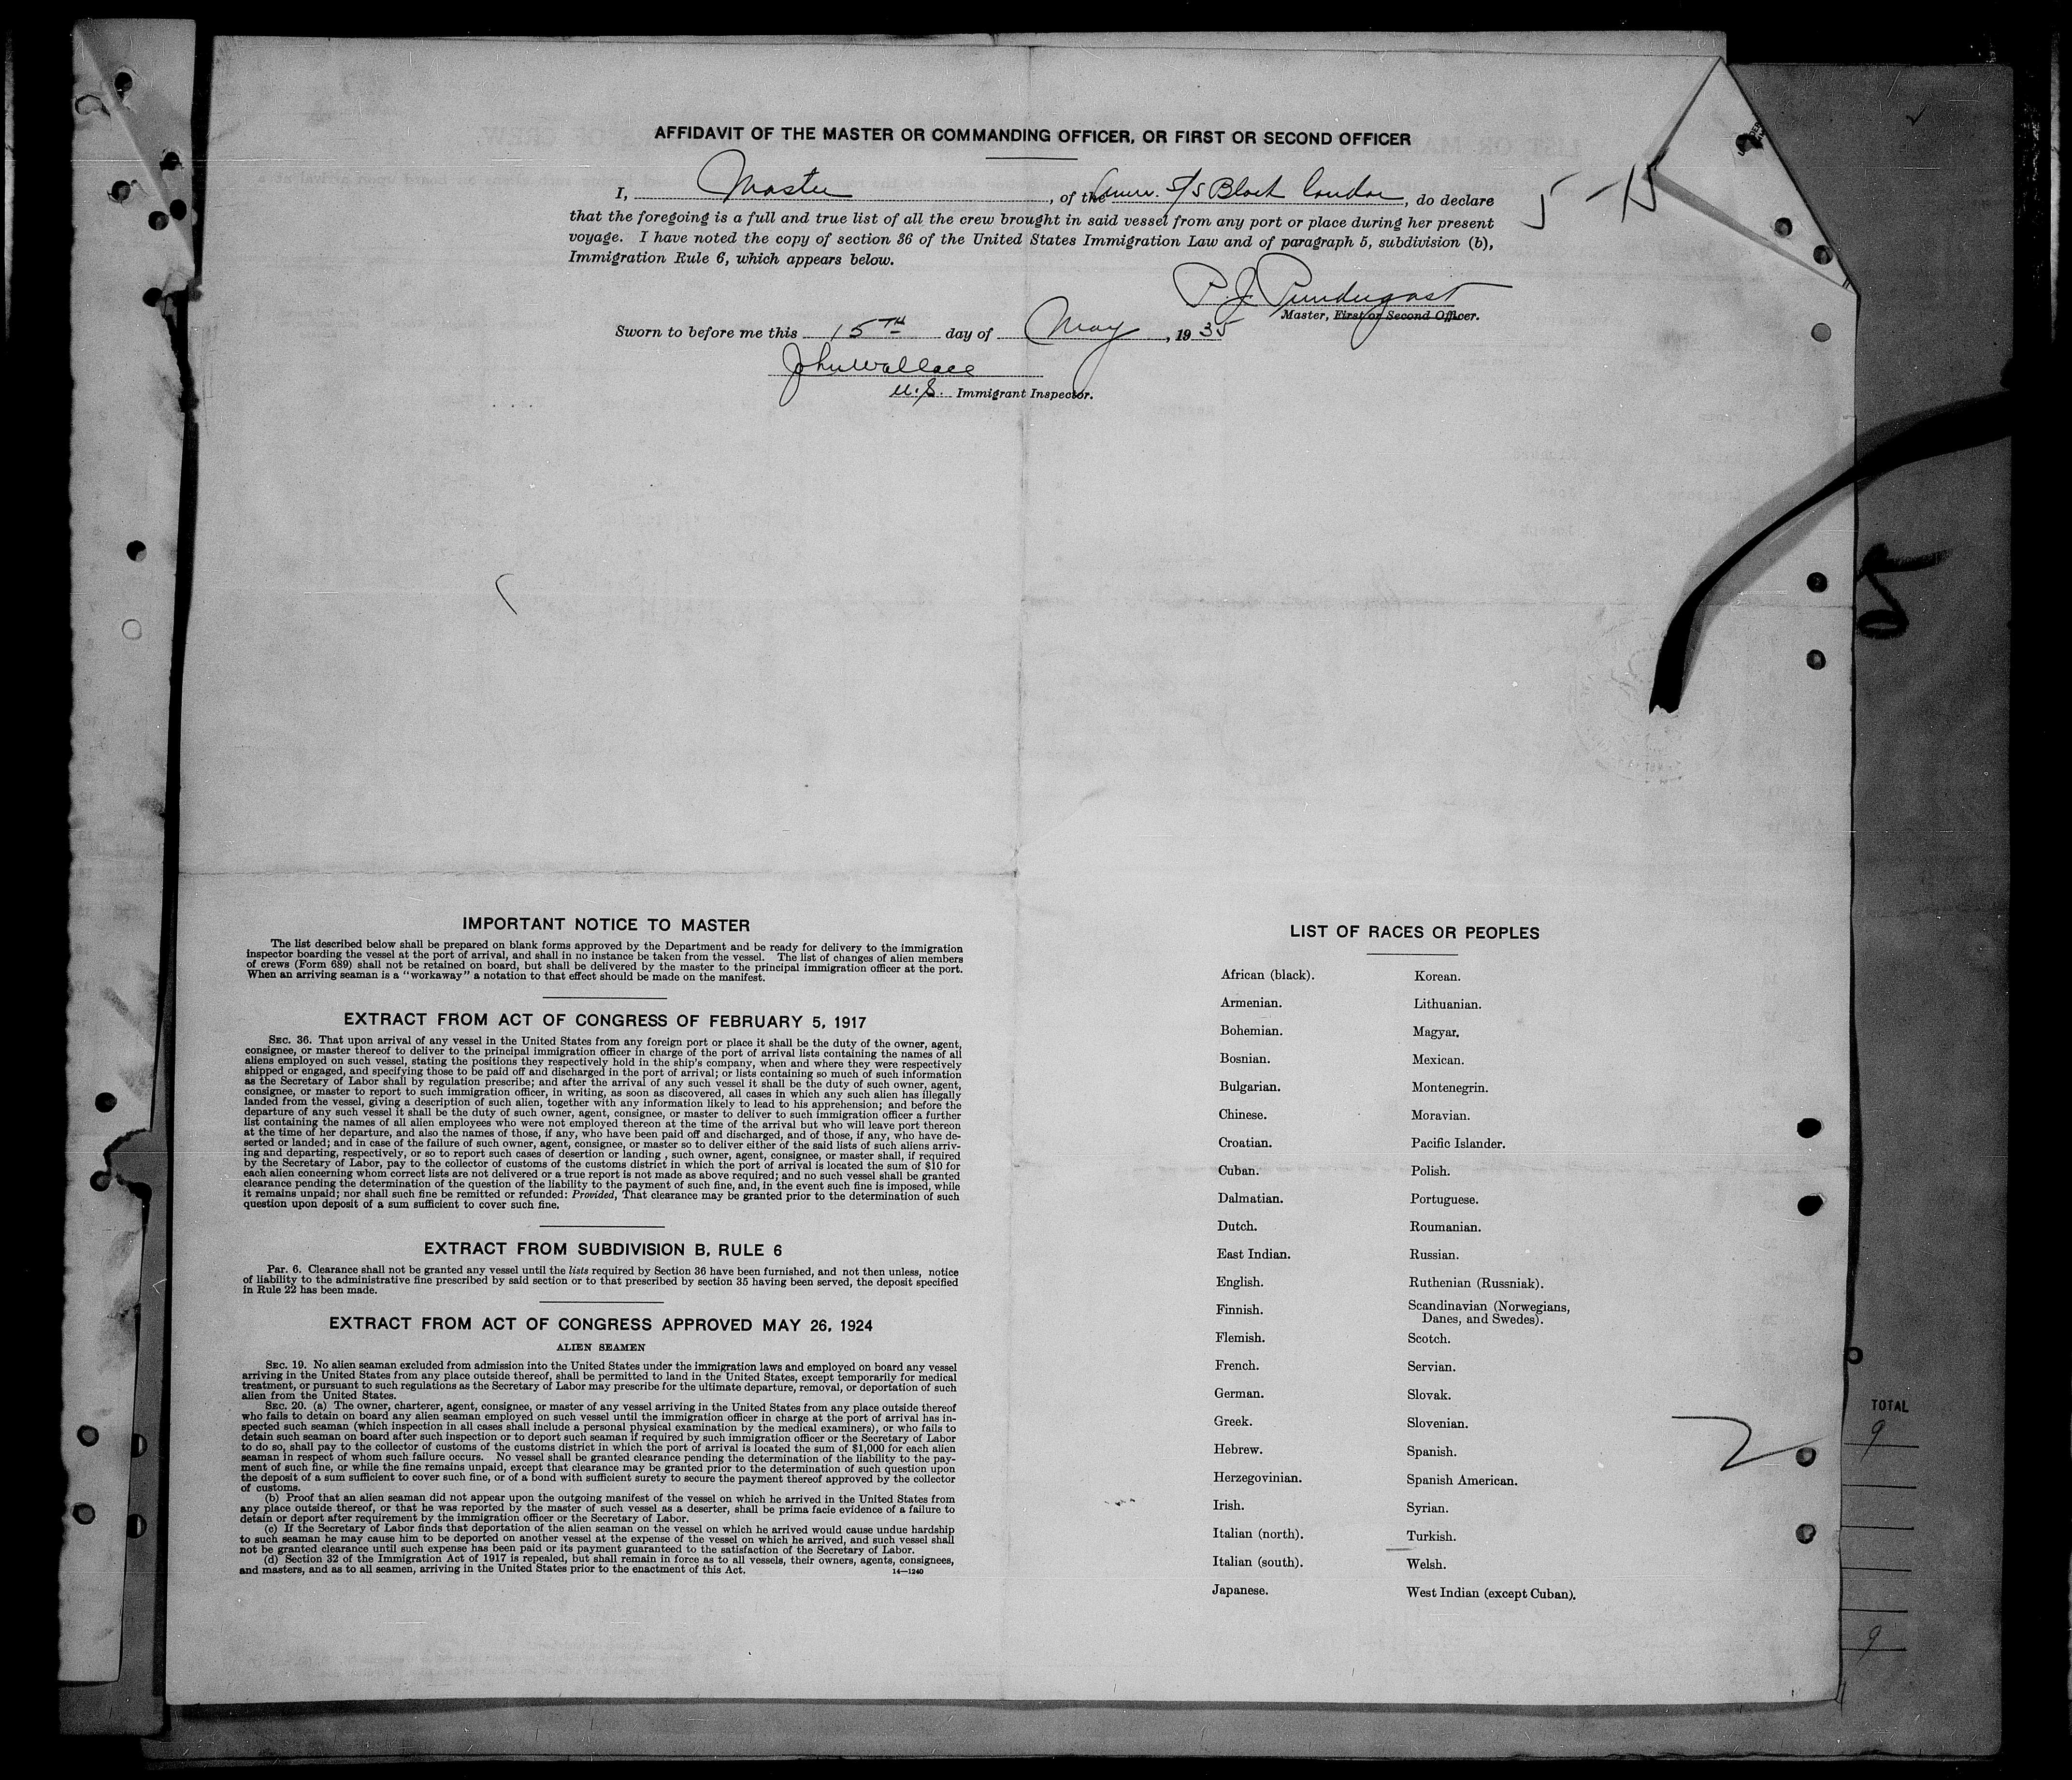 AFFIDAVIT OF THE MASTER OR COMMANDING OFFICER, OR FIRST OR SECOND OFFICER
I, Master, of the Amer. S/S Black Condor, do declare
that the foregoing is a full and true list of all the crew brought in said vessel from any port or place during her present
voyage. I have noted the copy of section 36 of the United States Immigration Law and of paragraph 5, subdivision (b),
Immigration Rule 6, which appears below.
5-15
P. J. Pundergast
Master, First or Second Officer.
Sworn to before me this 15TH day of May, 1935
John Wallace
U.S. Immigrant Inspector.
5
IMPORTANT NOTICE TO MASTER
The list described below shall be prepared on blank forms approved by the Department and be ready for delivery to the immigration
inspector boarding the vessel at the port of arrival, and shall in no instance be taken from the vessel. The list of changes of alien members
of crews (Form 689) shall not be retained on board, but shall be delivered by the master to the principal immigration officer at the port.
When an arriving seaman is a "workaway" a notation to that effect should be made on the manifest.
EXTRACT FROM ACT OF CONGRESS OF FEBRUARY 5, 1917
SEC. 36. That upon arrival of any vessel in the United States from any foreign port or place it shall be the duty of the owner, agent,
consignee, or master thereof to deliver to the principal immigration officer in charge of the port of arrival lists containing the names of all
aliens employed on such vessel, stating the positions they respectively hold in the ship's company, when and where they were respectively
shipped or engaged, and specifying those to be paid off and discharged in the port of arrival; or lists containing so much of such information
as the Secretary of Labor shall by regulation prescribe; and after the arrival of any such vessel it shall be the duty of such owner, agent,
consignee, or master to report to such immigration officer, in writing, as soon as discovered, all cases in which any such alien has illegally
landed from the vessel, giving a description of such alien, together with any information likely to lead to his apprehension; and before the
departure of any such vessel it shall be the duty of such owner, agent, consignee, or master to deliver to such immigration officer a further
list containing the names of all alien employees who were not employed thereon at the time of the arrival but who will leave port thereon
at the time of her departure, and also the names of those, if any, who have been paid off and discharged, and of those, if any, who have de-
serted or landed; and in case of the failure of such owner, agent, consignee, or master so to deliver either of the said lists of such aliens arriv-
ing and departing, respectively, or so to report such cases of desertion or landing , such owner, agent, consignee, or master shall, if required
by the Secretary of Labor, pay to the collector of customs of the customs district in which the port of arrival is located the sum of $10 for
each alien concerning whom correct lists are not delivered or a true report is not made as above required; and no such vessel shall be granted
clearance pending the determination of the question of the liability to the payment of such fine, and, in the event such fine is imposed, while
it remains unpaid; nor shall such fine be remitted or refunded: Provided, That clearance may be granted prior to the determination of such
question upon deposit of a sum sufficient to cover such fine.
EXTRACT FROM SUBDIVISION B, RULE 6
Par. 6. Clearance shall not be granted any vessel until the lists required by Section 36 have been furnished, and not then unless, notice
of liability to the administrative fine prescribed by said section or to that prescribed by section 35 having been served, the deposit specified
in Rule 22 has been made.
EXTRACT FROM ACT OF CONGRESS APPROVED MAY 26, 1924
ALIEN SEAMEN
SEC. 19. No alien seaman excluded from admission into the United States under the immigration laws and employed on board any vessel
arriving in the United States from any place outside thereof, shall be permitted to land in the United States, except temporarily for medical
treatment, or pursuant to such regulations as the Secretary of Labor may prescribe for the ultimate departure, removal, or deportation of such
alien from the United States.
SEC. 20. (a) The owner, charterer, agent, consignee, or master of any vessel arriving in the United States from any place outside thereof
who fails to detain on board any alien seaman employed on such vessel until the immigration officer in charge at the port of arrival has in-
spected such seaman (which inspection in all cases shall include a personal physical examination by the medical examiners), or who fails to
detain such seaman on board after such inspection or to deport such seaman if required by such immigration officer or the Secretary of Labor
to do so, shall pay to the collector of customs of the customs district in which the port of arrival is located the sum of $1,000 for each alien
seaman in respect of whom such failure occurs. No vessel shall be granted clearance pending the determination of the liability to the pay-
ment of such fine, or while the fine remains unpaid, except that clearance may be granted prior to the determination of such question upon
the deposit of a sum sufficient to cover such fine, or of a bond with sufficient surety to secure the payment thereof approved by the collector
of customs.
(b) Proof that an alien seaman did not appear upon the outgoing manifest of the vessel on which he arrived in the United States from
any place outside thereof, or that he was reported by the master of such vessel as a deserter, shall be prima facie evidence of a failure to
detain or deport after requirement by the immigration officer or the Secretary of Labor.
(c) If the Secretary of Labor finds that deportation of the alien seaman on the vessel on which he arrived would cause undue hardship
to such seaman he may cause him to be deported on another vessel at the expense of the vessel on which he arrived, and such vessel shall
not be granted clearance until such expense has been paid or its payment guaranteed to the satisfaction of the Secretary of Labor.
(d) Section 32 of the Immigration Act of 1917 is repealed, but shall remain in force as to all vessels, their owners, agents, consignees,
and masters, and as to all seamen, arriving in the United States prior to the enactment of this Act.
14—1240
LIST OF RACES OR PEOPLES
African (black).
Armenian.
Bohemian.
Bosnian.
Bulgarian.
Chinese.
Croatian.
Cuban.
Dalmatian.
Dutch.
East Indian.
English.
Finnish.
Flemish.
French.
German.
Greek.
Hebrew.
Herzegovinian.
Irish.
Italian (north).
Italian (south).
Japanese.
Korean.
Lithuanian.
Magyar.
Mexican.
Montenegrin.
Moravian.
Pacific Islander.
Polish.
Portuguese.
Roumanian.
Russian.
Ruthenian (Russniak).
Scandinavian (Norwegians,
Danes, and Swedes).
Scotch.
Servian.
Slovak.
Slovenian.
Spanish.
Spanish American.
Syrian.
Turkish.
Welsh.
West Indian (except Cuban).
2
TOTAL
9
9